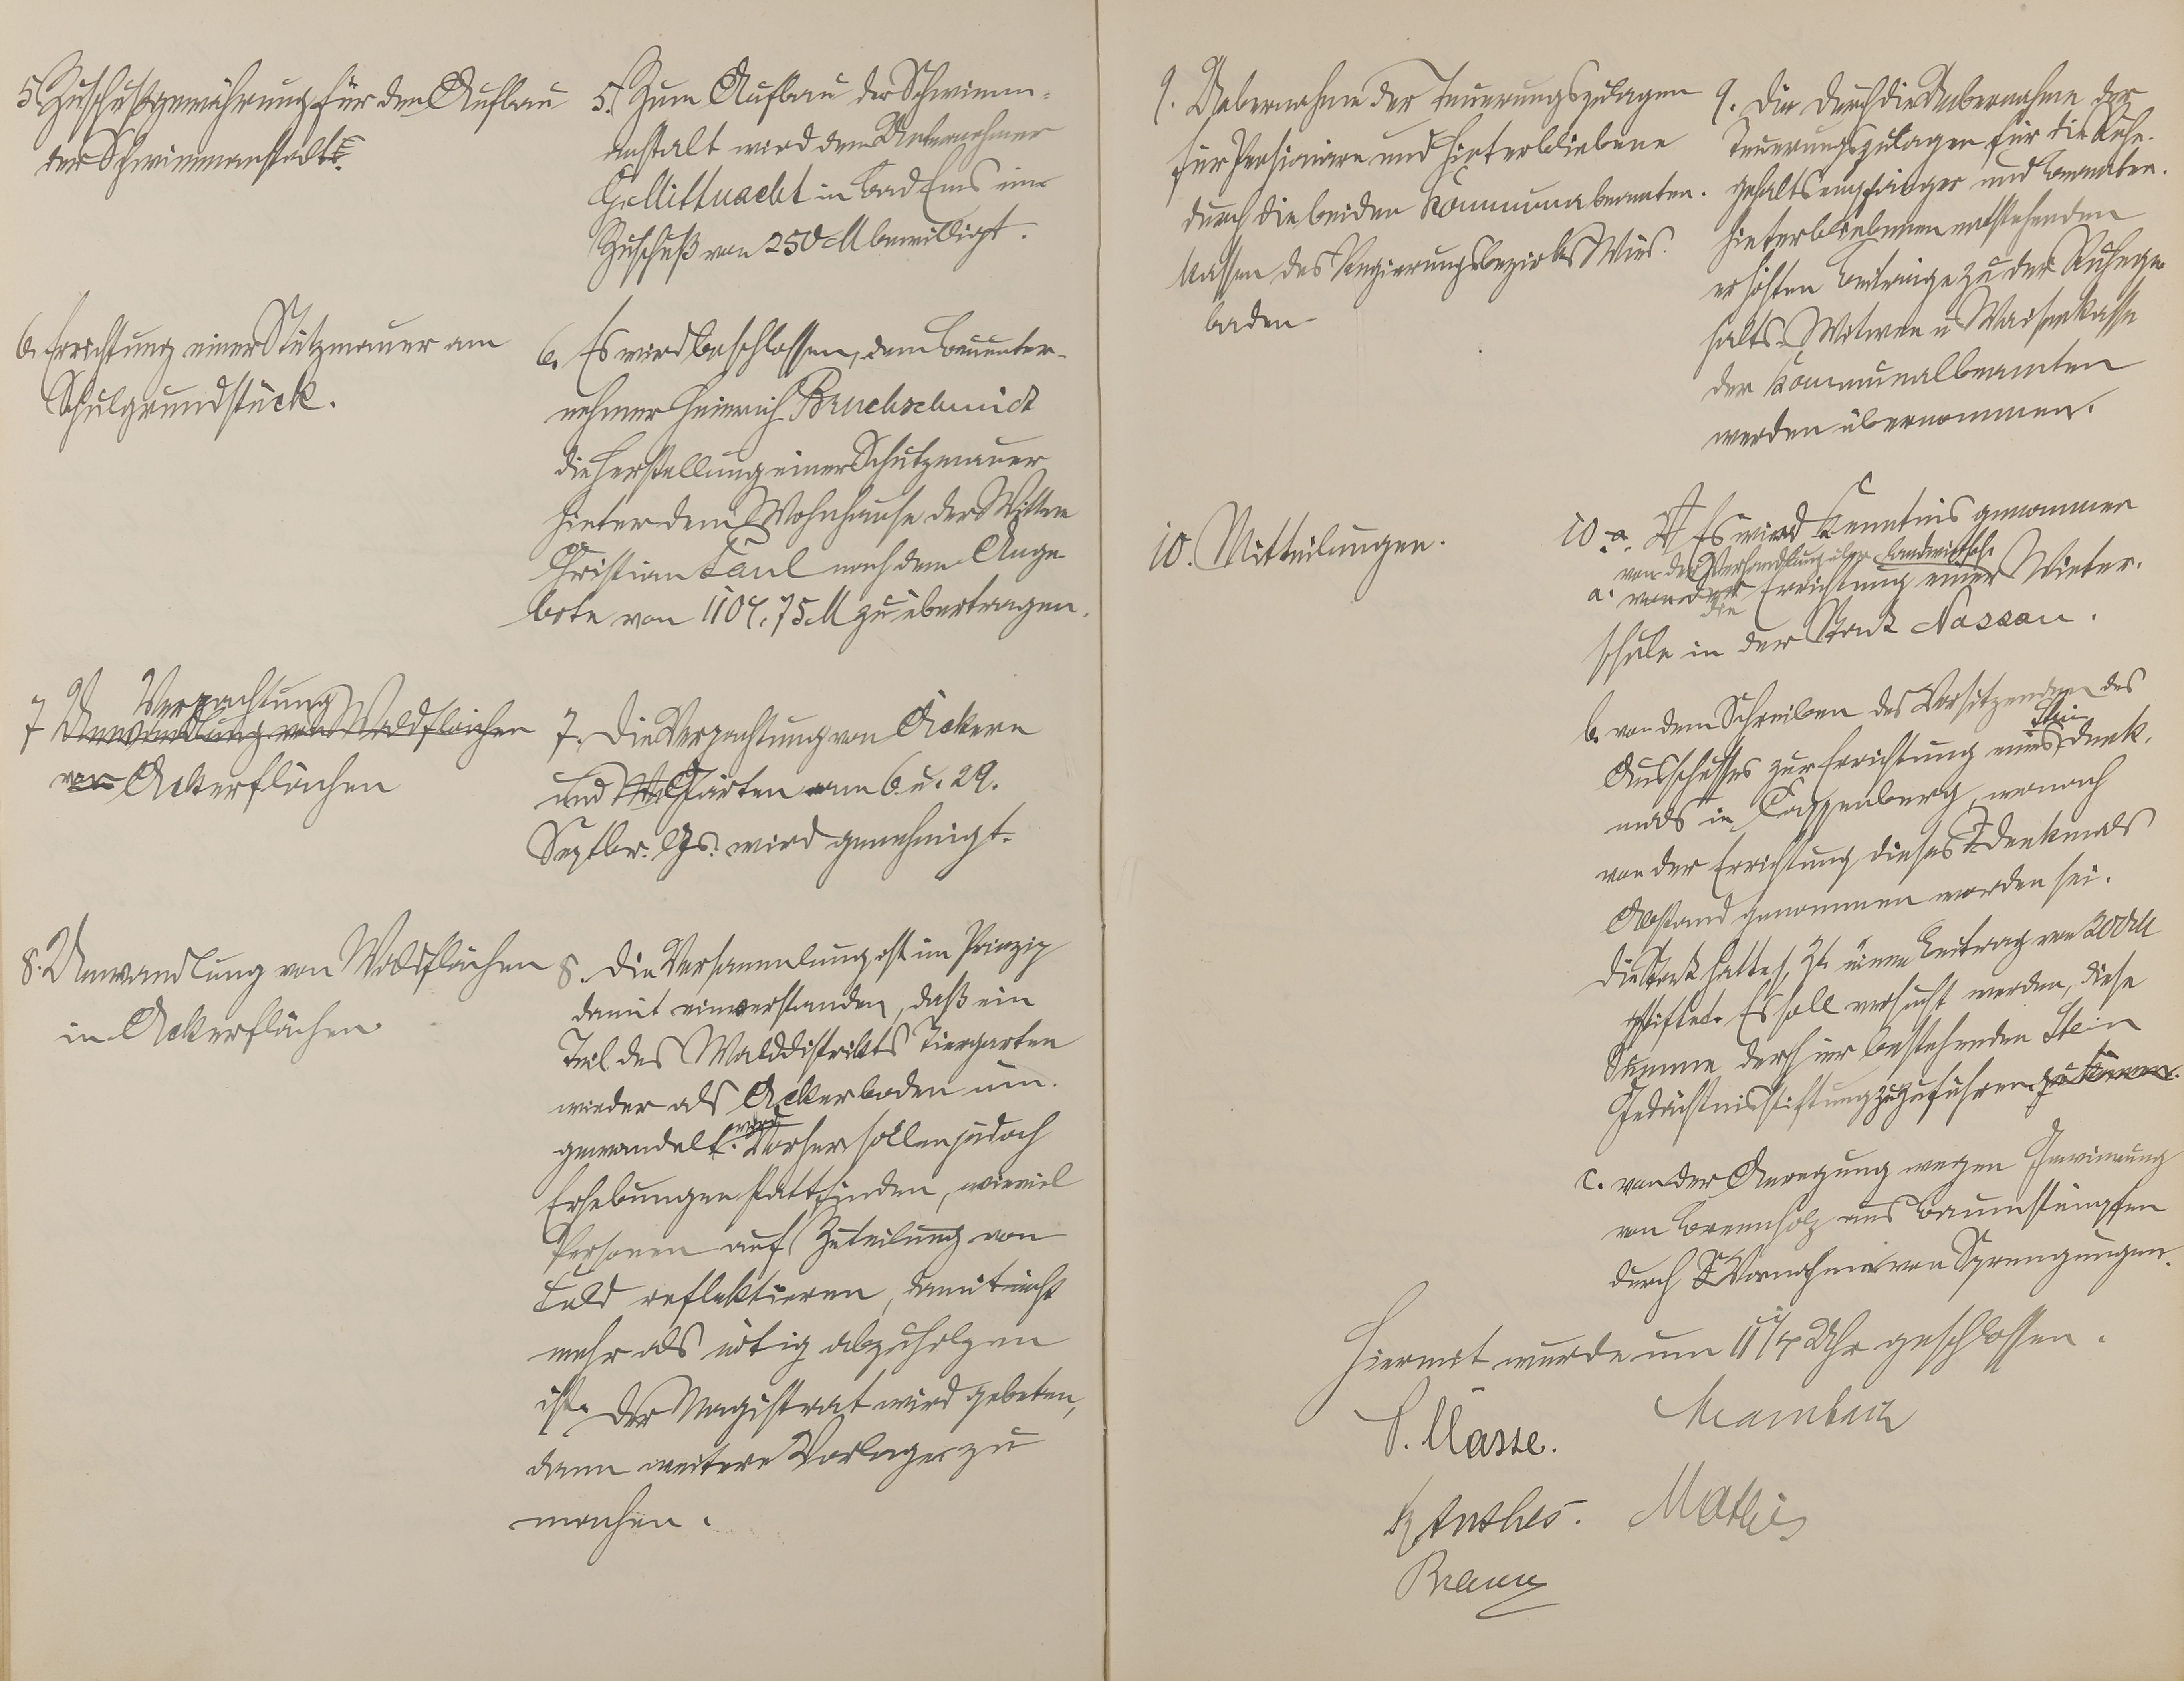 5. Zuschußgewährung für den Aufbau
der Schwimmanstalt.
5. Zum Aufbau der Schwimm-
anstalt wird dem Unternehmer
G. Mittnacht in Bad Ems ein
Zuschuß von 250 M bewilligt.
6. Errichtung einer Stützmauer am
Schulgrundstück.
6. Es wird beschlossen, dem Bauunter-
nehmer Heinrich Bruchschmidt
die Herstellung einer Schutzmauer
hinter dem Wohnhause der Witwe
Christian Paul nach dem Ange
bote von 1104,75 M zu übertragen.
7 Verpachtung
Umwandlung von Waldflächen
von Ackerflächen
7. Die Verpachtung von Äckern
und Gärten am 6. u. 29.
Septbr. ds. Js. wird genehmigt.
8. Umwandlung von Waldflächen
in Ackerflächen
8. Die Versammlung ist im Prinzip
damit einverstanden, daß ein
Teil des Walddistrikts Tiergarten
wieder als Ackerboden um-
gewandelt wird. Vorher sollen jedoch
Erhebungen stattfinden, wieviel
Personen auf Zuteilung von
Feld reflektieren, damit nicht
mehr als nötig abzuholzen
ist. Der Magistrat wird gebeten,
dann weitere Vorlage zu
machen.
9. Uebernahme der Teuerungszulagen
für Pensionäre und Hinterbliebene
durch die beiden Kommunabeamten-
kassen des Regierungsbezirks Wies-
baden
9. Die durch die Uebernahme der
Teuerungszulagen für die Ruhe-
gehaltsempfänger und Beamten-
hinterbliebenen entstehenden
erhöhten Beiträge zu der Ruhege
halts- Witwen u Waisenkasse
der Kommunalbeamten
werden übernommen.
10. Mitteilungen.
10 a. Es wird Kenntnis genommen
von der Verhandlung über landwirtsch.
a. von der die Errichtung einer Winter-
schule in der Stadt Nassau.
b. von dem Schreiben des Vorsitzenden des
Ausschusses zur Errichtung eines Stein Denk-
mals in Cappenberg, wonach
von der Errichtung dieses Denkmals
Abstand genommen worden sei.
Die Stadt hatte s. Zt. einen Beitrag von 200 M
gestiftet. Es soll versucht werden, diese
Summe der hier bestehenden Stein
Gedächtnisstiftung zuzuführen zu können.
c. von der Anregung wegen Gewinnung
von Brennholz aus Baumstümpfen
durch Vornahme von Sprengungen.
Hiermit wurde um 11 1/4 Uhr geschlossen.
P. Masse.
Anthes.
Mathis
Braun